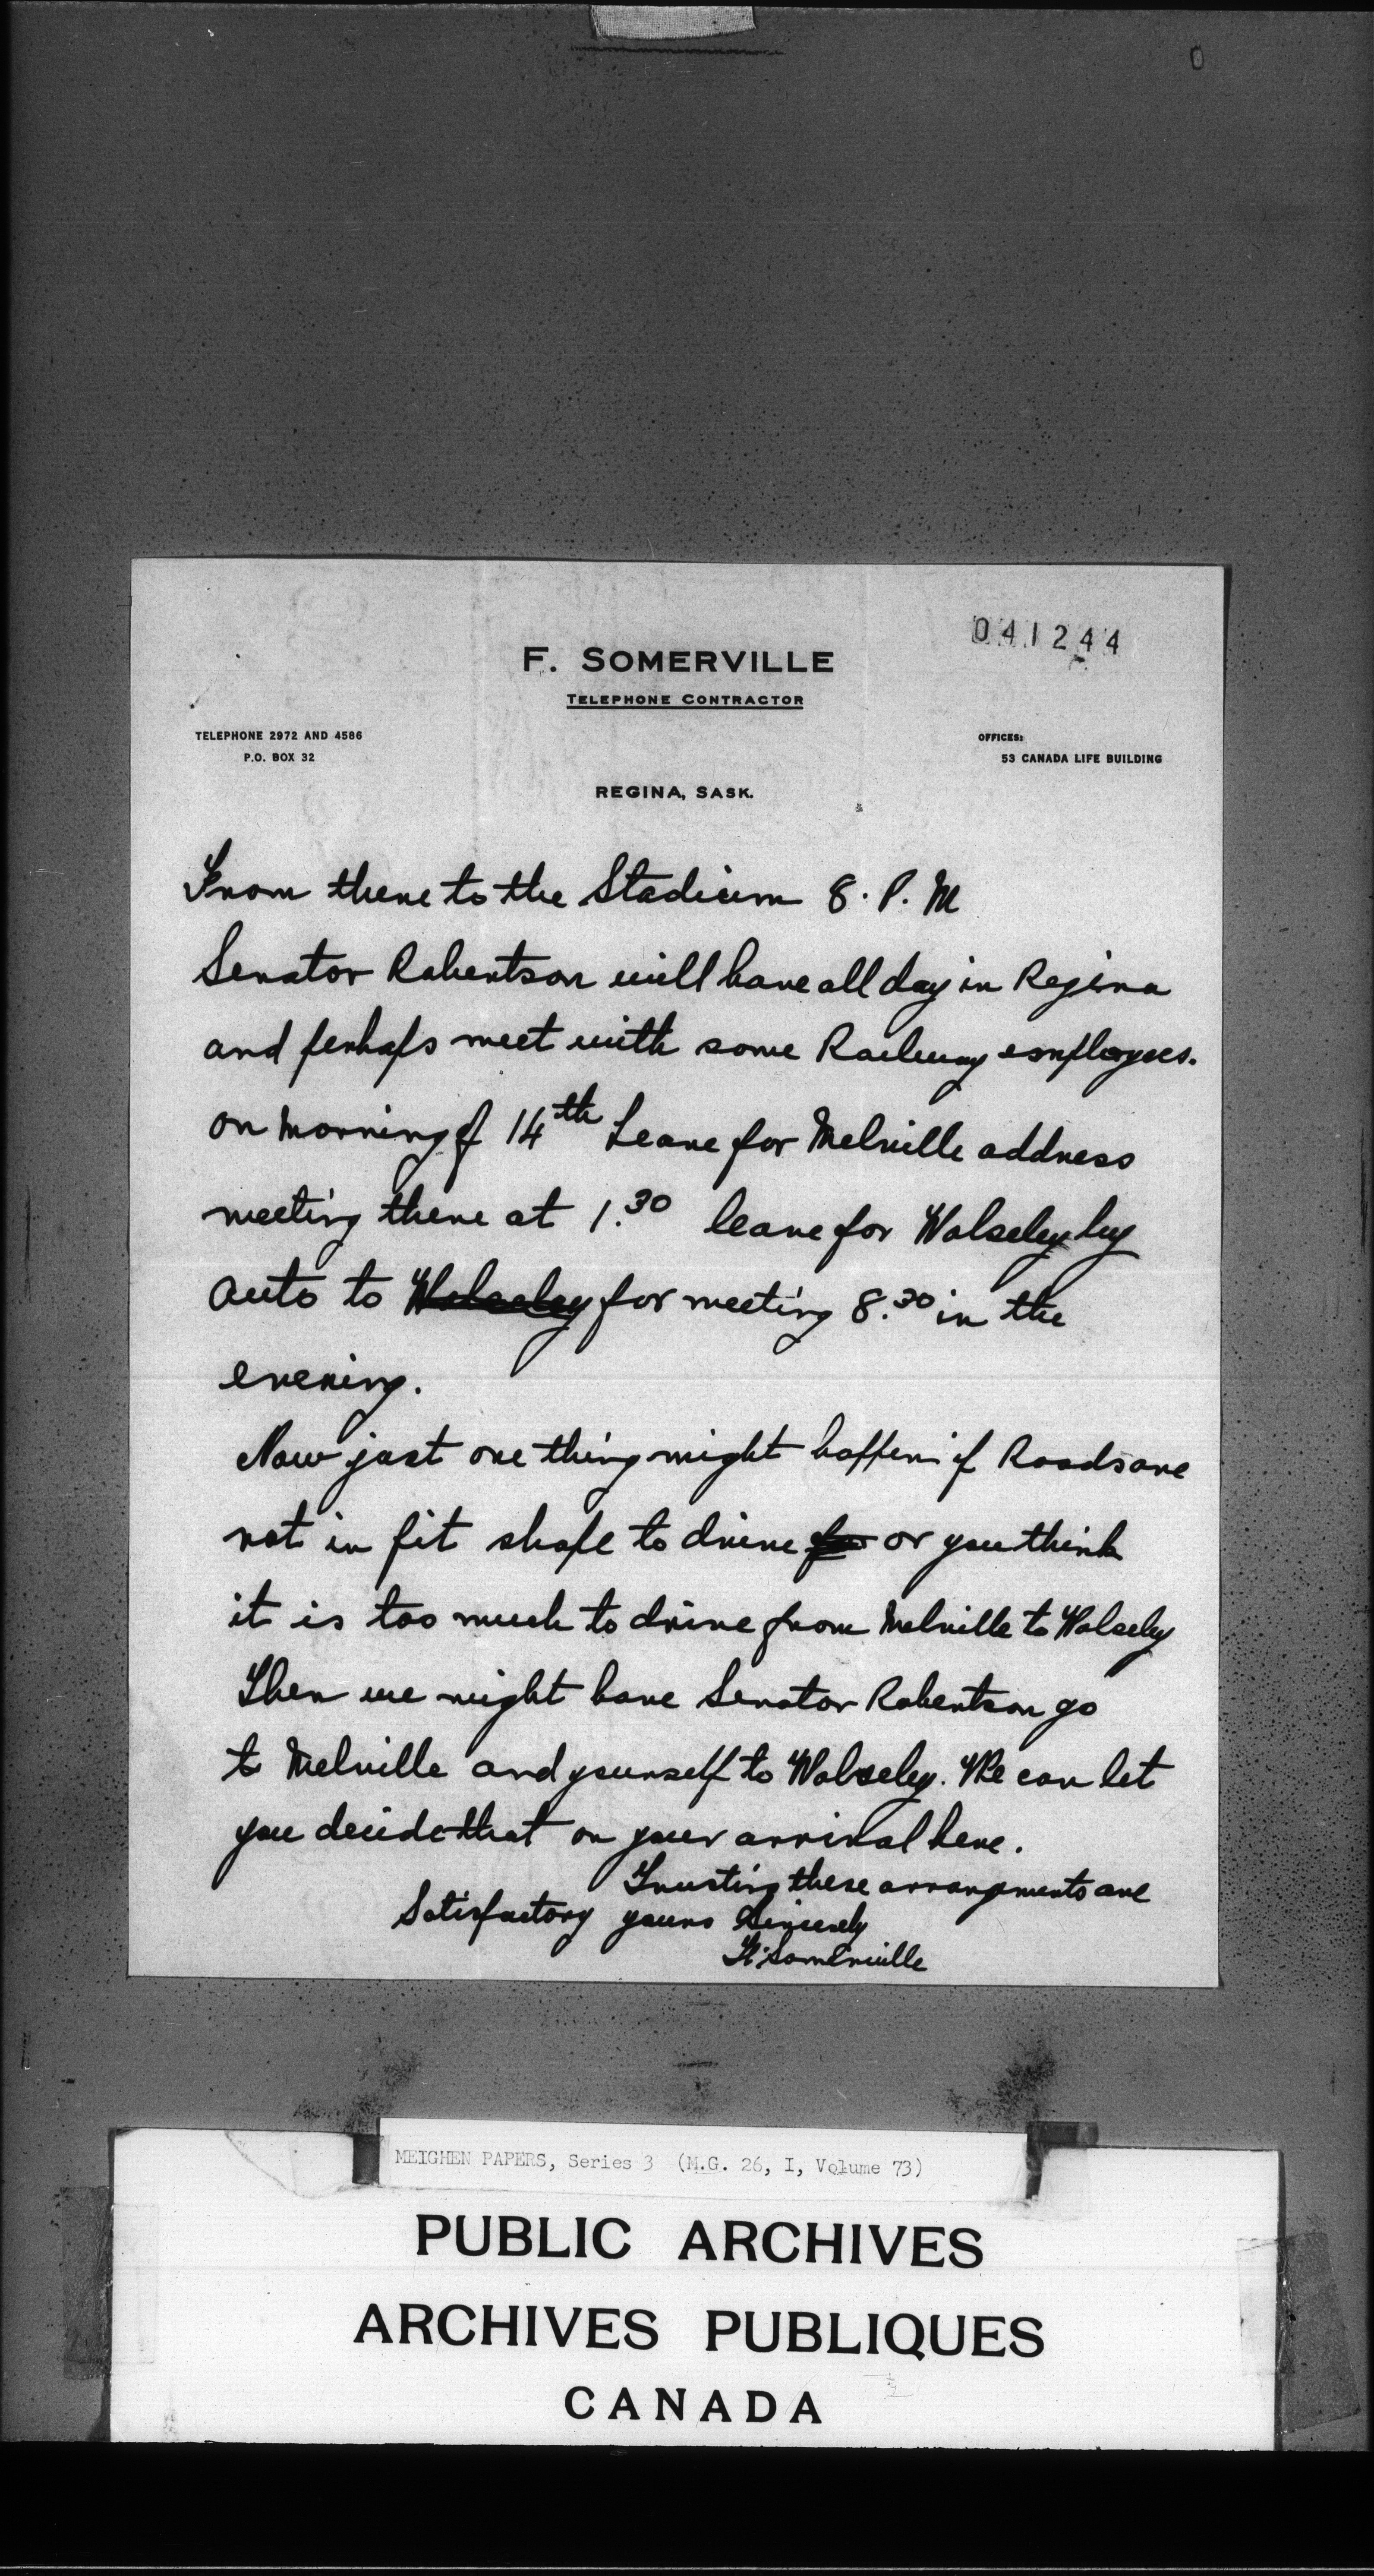 041244
F. SOMERVILLE
TELEPHONE CONTRACTOR
TELEPHONE 2972 AND 4586
P.O. BOX 32
OFFICES:
53 CANADA LIFE BUILDING
REGINA, SASK.
From there to the Stadium 8. P. M
Senator Robertson will have all day in Regina
and perhaps meet with some Railway employees.
on morning of 14th Leave for Melville address
meeting there at 1.30 leave for Wolseley by
auto to Wolseley for meeting 8.30 in the
evening.
Now just one thing might happen if Roads are
not in fit shape to drive for or you think
it is too much to drive from Melville to Wolseley
Then we might have Senator Robertson go
to Melville and yourself to Wolseley. We can let
you decide that on your arrival here.
Trusting these arrangements are
Satisfactory yours Sincerely
F. Somerville
MEIGHEN PAPERS, Series 3 (M.G. 26, I, Volume 73)
PUBLIC ARCHIVES
ARCHIVES PUBLIQUES
CANADA